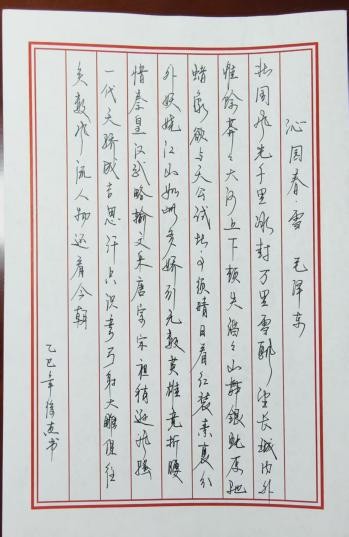 沁园春·雪 毛泽东
北国风光千里冰封万里雪飘望长城内外
惟餘莽々大河上下顿失滔々山舞银蛇原驰
蜡象欲与天公试比高须晴日看红装素裹分
外妖娆江山如此多娇引无数英雄竞折腰
惜秦皇汉武略输文采唐宗宋祖稍逊风骚
一代天骄成吉思汗只识弯弓射大雕俱往
矣数风流人物还看今朝
乙巳年徐书